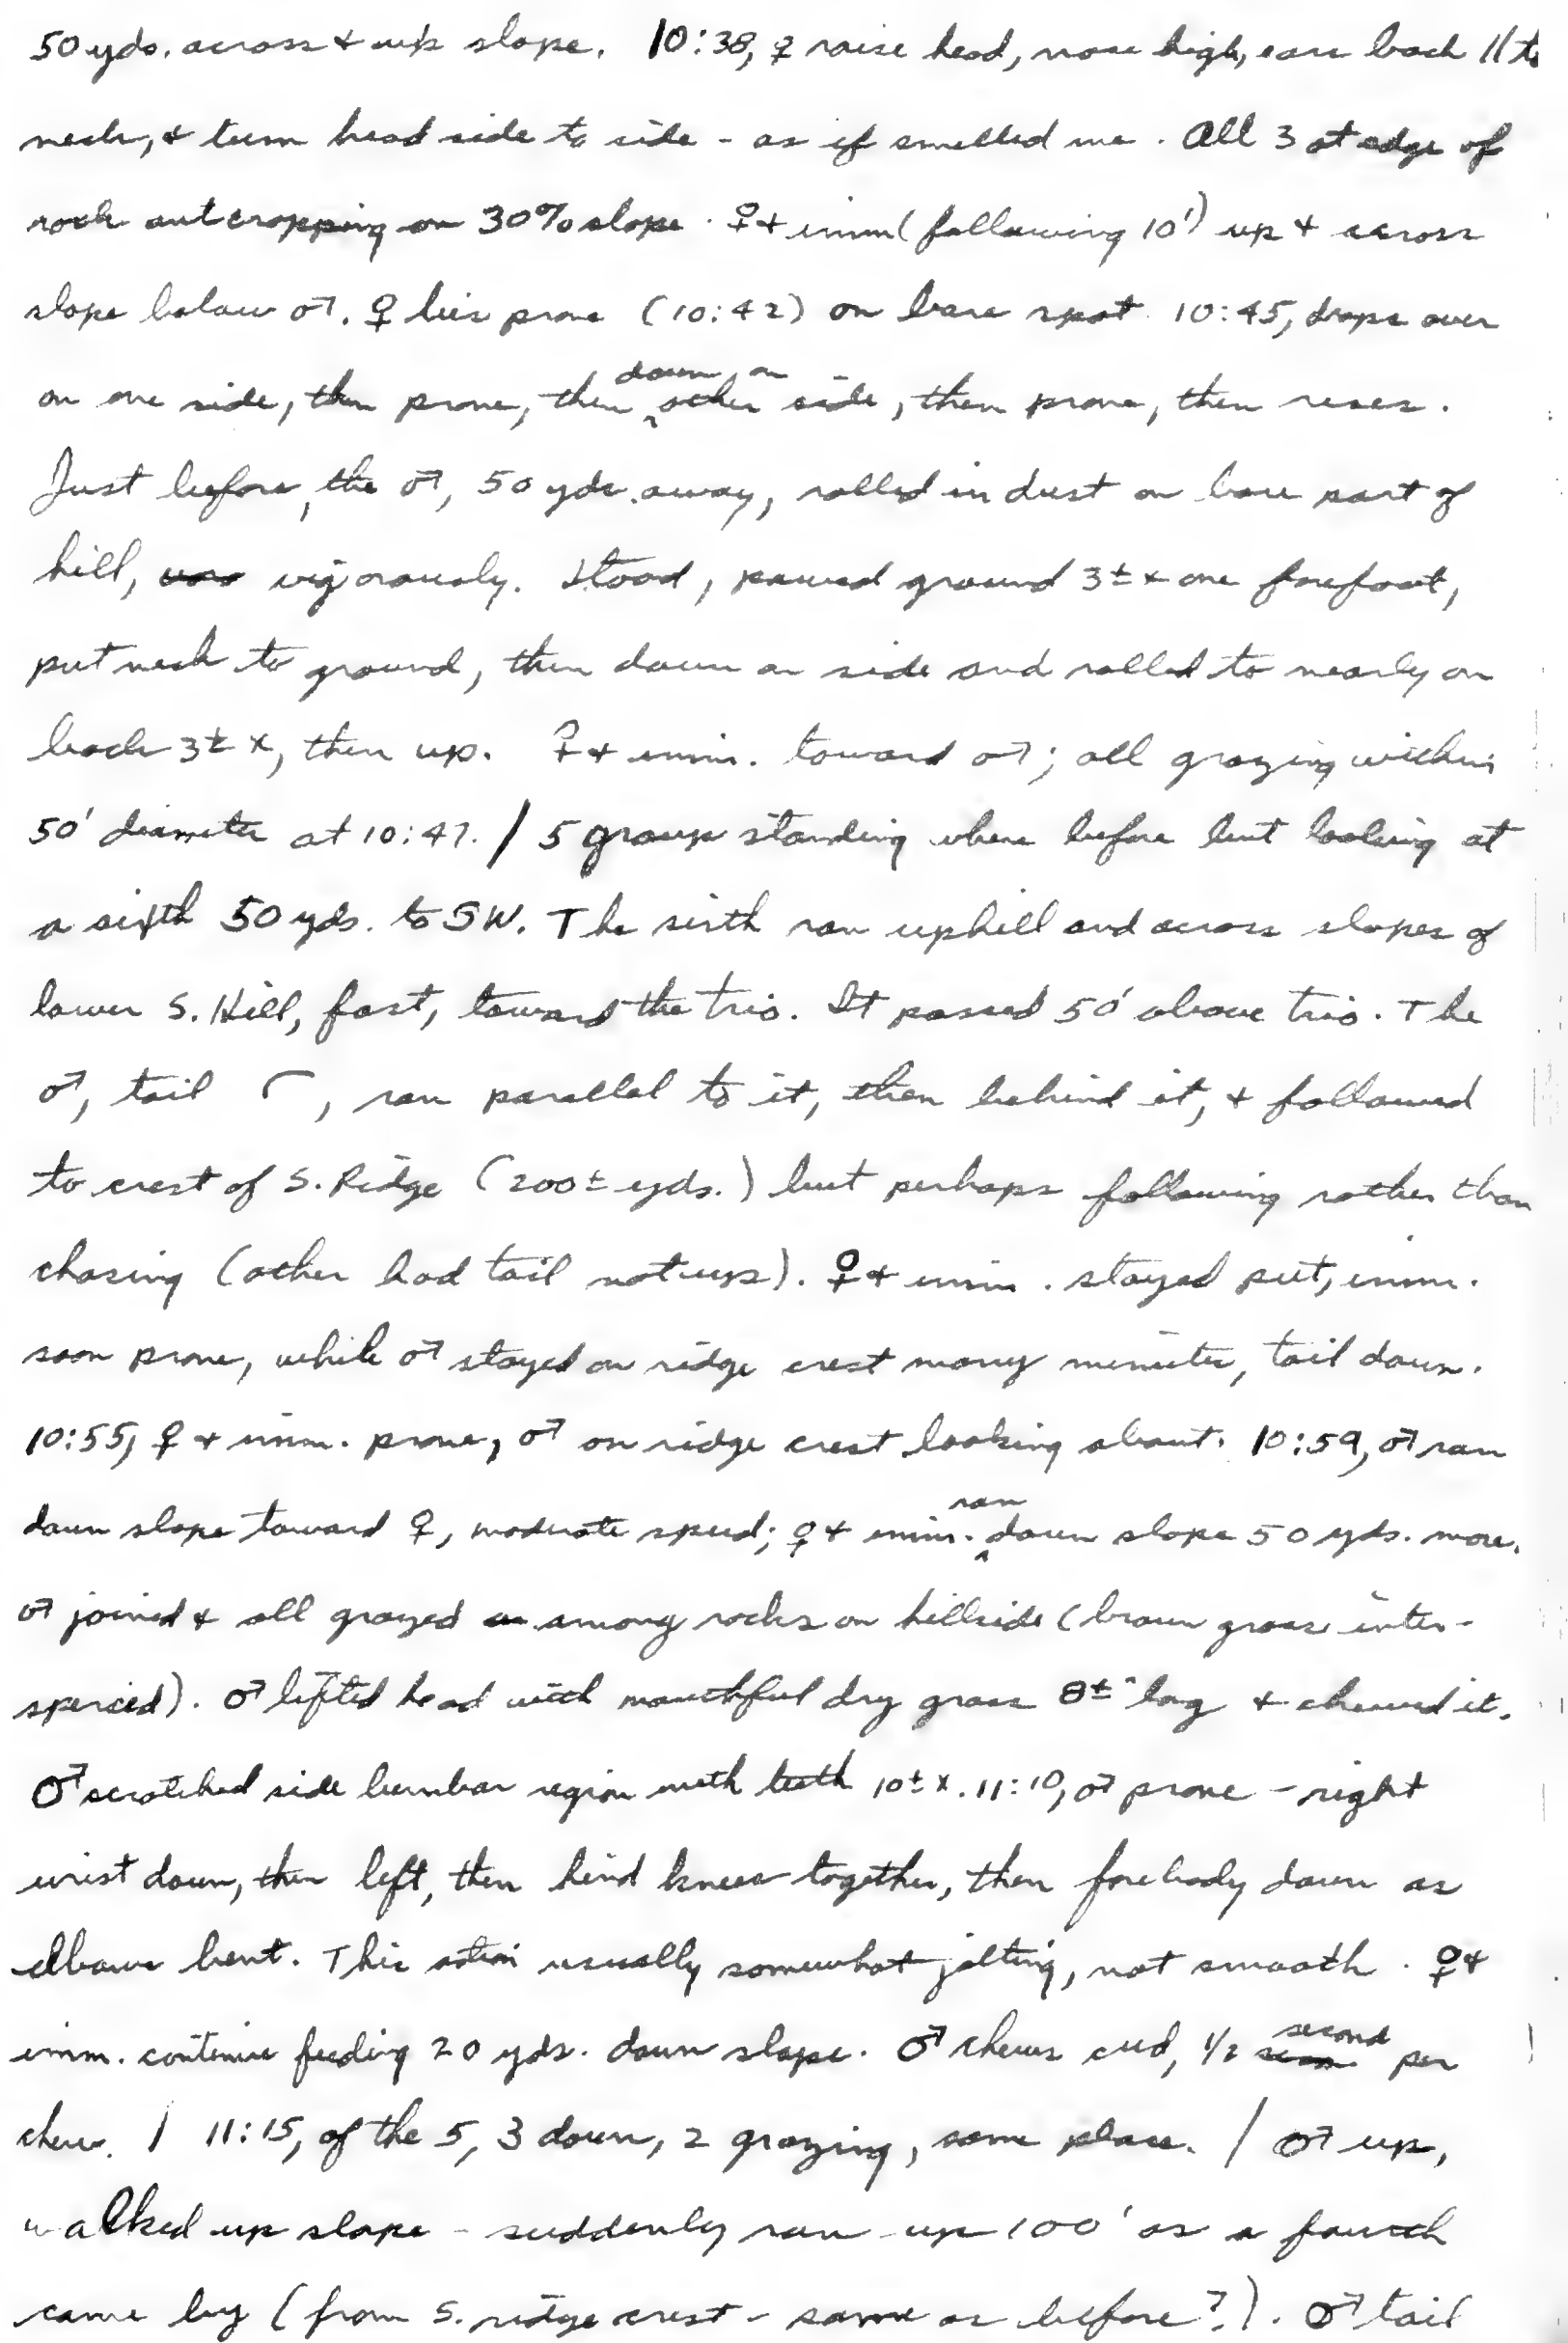 50 yds. across & up slope. 10:38, ♀ raise head, nose high, ears back || to
neck, & turn head side to side - as if smelled me. All 3 at edge of
rock outcropping on 30% slope. ♀ + imm (following 10') up & across
slope below ♂. ♀ lies prone (10:42) on bare spot. 10:45, drops over
on one side, then prone, then down on other side, then prone, then rises.
Just before, the ♂, 50 yds. away, rolled in dust on bare part of
hill, vigorously. Stood, pawed ground 3± x one forefoot,
put neck to ground, then down on side and rolled to nearly on
back 3± x, then up. ♀ + imm. toward ♂; all grazing within
50' diameter at 10:47. / 5 group standing where before but looking at
a sixth 50 yds. to SW. The sixth ran uphill and across slopes of
lower S. Hill, fast, toward the trio. It passed 50' above trio. The
♂, tail ⌒, ran parallel to it, then behind it, & followed
to crest of S. Ridge (200± yds.) but perhaps following rather than
chasing (other had tail not up). ♀ + imm. stayed put, imm.
soon prone, while ♂ stayed on ridge crest many minutes, tail down.
10:55, ♀ + imm. prone, ♂ on ridge crest looking about. 10:59, ♂ ran
down slope toward ♀, moderate speed; ♀ + imm. ran down slope 50 yds. more.
♂ joined & all grazed among rocks on hillside (brown grass inter-
sperced). ♂ lifted head with mouthful dry grass 8±" long & chewed it.
♂ scratched side lumbar region with teeth 10± x. 11:10, ♂ prone - right
wrist down, then left, then hind knees together, then forebody down as
elbows bent. This action usually somewhat jolting, not smooth. ♀ +
imm. continue feeding 20 yds. down slope. ♂ chews cud, 1/2 second per
chew. / 11:15, of the 5, 3 down, 2 grazing, same place. / ♂ up,
walked up slope - suddenly ran up 100' as a fourth
came by (from S. ridge crest - same as before?). ♂ tail